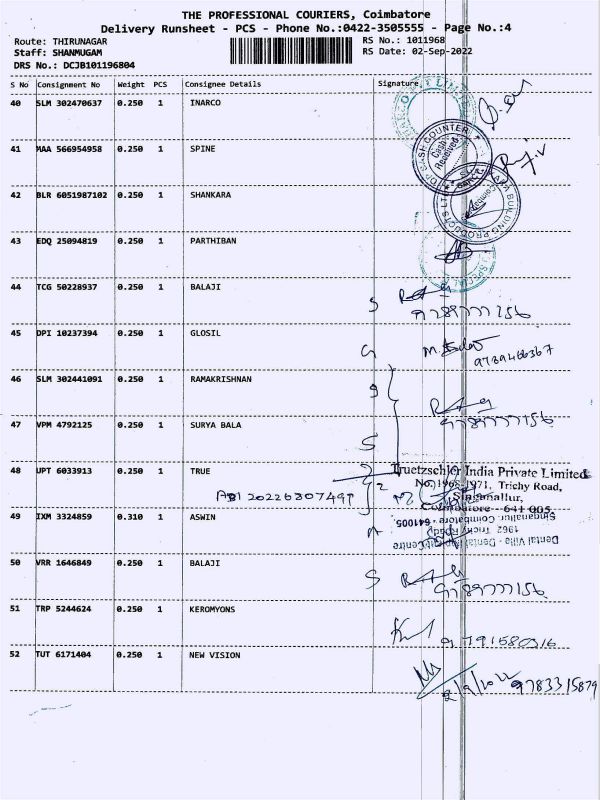 THE PROFESSIONAL COURIERS, Coimbatore
Delivery Runsheet - PCS - Phone No.:0422-3505555 - Page No.:4
Route: THIRUNAGAR
RS No.: 1011968
Staff: SHANMUGAM
RS Date: 02-Sep-2022
DRS No.: DCJB101196804
S No Consignment No Weight PCS Consignee Details Signature
40 SLM 302470637 0.250 1 INARCO
41 MAA 566954958 0.250 1 SPINE
CASH COUNTER
Cash Received
42 BLR 6051987102 0.250 1 SHANKARA
BUILDING PRODUCTS
43 EDQ 25094819 0.250 1 PARTHIBAN
SPECIAL
44 TCG 50228937 0.250 1 BALAJI
S
9789777156
45 DPI 10237394 0.250 1 GLOSIL
G
9789466367
46 SLM 302441091 0.250 1 RAMAKRISHNAN
47 VPM 4792125 0.250 1 SURYA BALA
S
9789777156
48 UPT 6033913 0.250 1 TRUE
Truetzschler India Private Limited
No.1968-1971, Trichy Road,
Singanallur,
Coimbatore - 641 005
49 IXM 3324859 0.310 1 ASWIN
Singanallur, Coimbatore - 641005
1962 Tricky Road
Dental Villa - Dental
Centre
50 VRR 1646849 0.250 1 BALAJI
S
9789777156
51 TRP 5244624 0.250 1 KEROMYONS
9791580316
52 TUT 6171404 0.250 1 NEW VISION
2/9/2022 9783315879